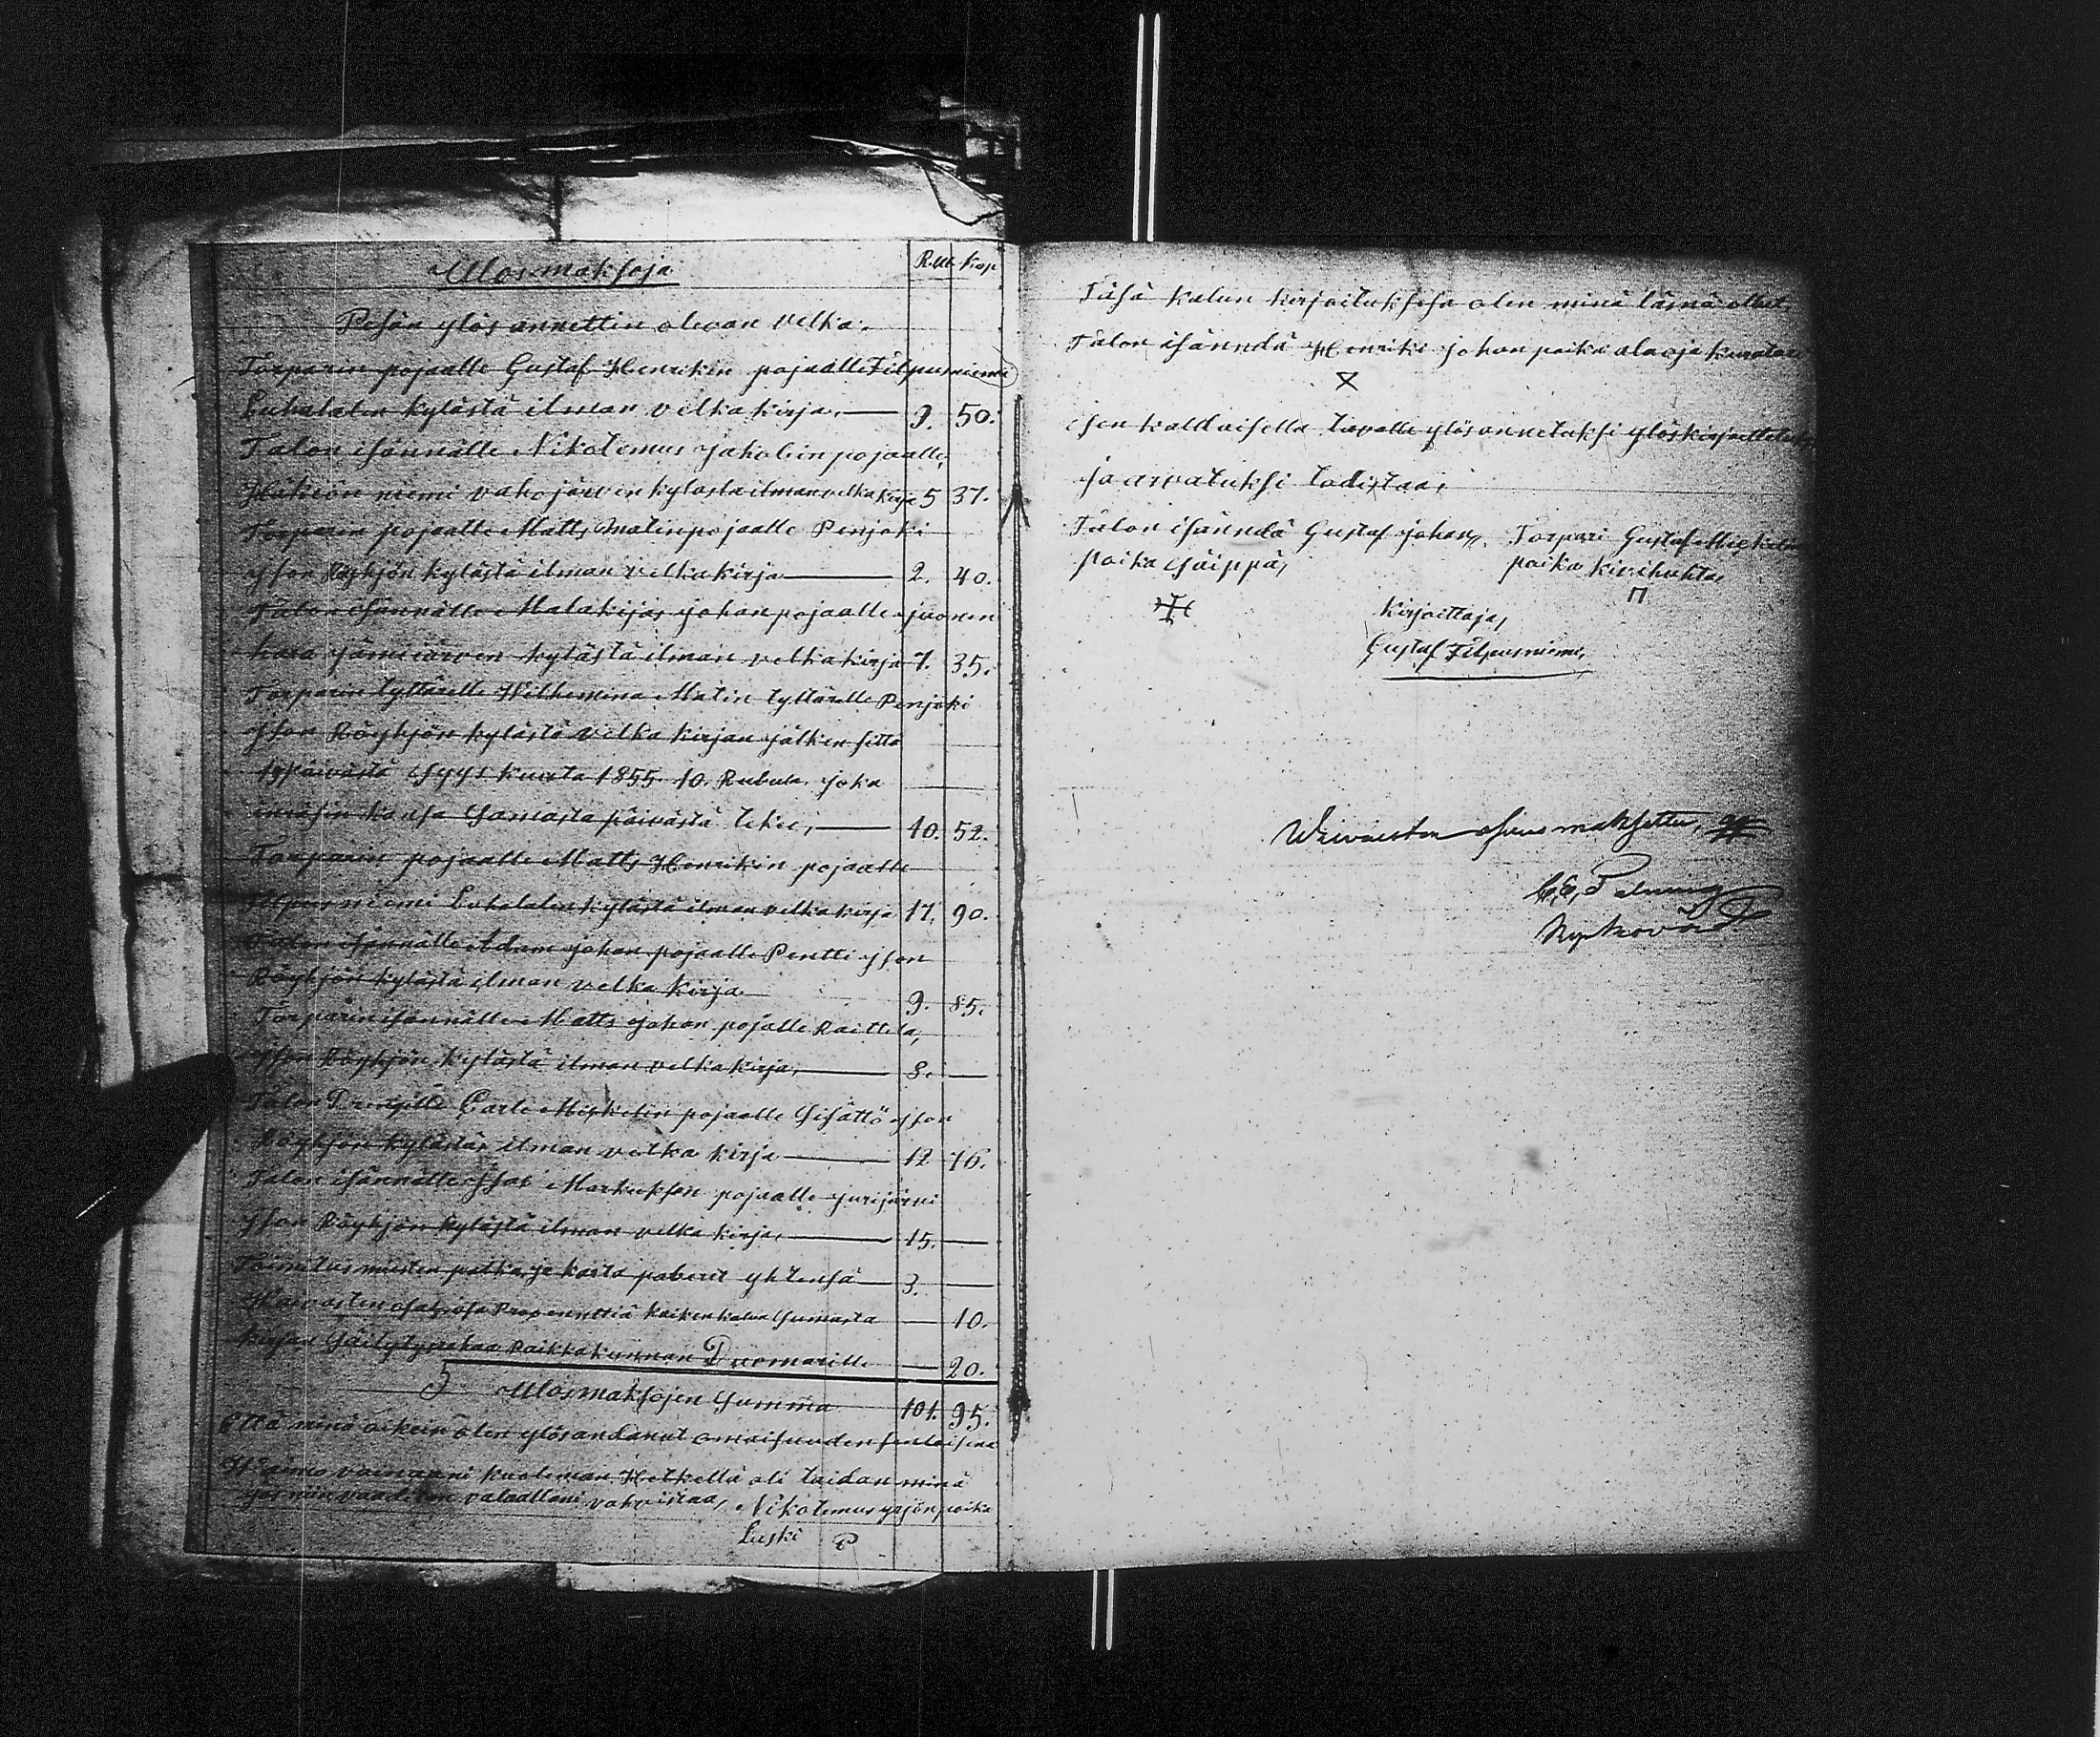 Ulosmaksoja Rub. Kop
Pesän ylös annettin olevan velka.
Torparin pojaalle Gustaf Henrikin pojaalle Filpusniemi
Luhalalen kylästä ilman velka kirja. 9. 50.
Talon isännälle Nikotemus Jakobin pojaalle,
niemi vahojärven kylästä ilman velka kirja 5 37.
Torparin pojaalle Matts Matin pojaalle Penjoki
ison Röyhjön kylästä ilman velka kirja 2. 40.
Talon isännälle Malakijas Johan pojaalle Juonen
hara Jämiiärven kylästä ilman velka kirja 7. 35.
Torparin tyttärelle Wilhemina Matin tyttärelle Penjoki
ison Röyhjön kylästä velka kirjan jälken sittä
päivästä Syys kuuta 1855. 10. Rubula joka
kansa Samasta päivästä tekee, 10. 52.
Torparin pojaalle Matts Henrikin pojaalle
Filpusniemi Luhalalen kylästä ilman velka kirja 17. 90.
Talon isännälle Adam Johan pojaalle Pentti ison
Röyhjön kylästä ilman velka kirja 9. 85.
Torparin isännälle Matts Johan pojalle Raittila,
ison Röyhjön kylästä ilman velka kirja, 8. —
Talon Drengille Carle Mickelin pojaalle Sisättö ison
Röyhjön kylästä, ilman velka kirja 12 76.
Talon isännälle Isai Markuksen pojaalle Jurijärvi
ison Röyhjön kylästä ilman velka kirja, 15. —
Toimitusmiesten palka ja karta paberit yhtensä 3. —
Waivasten osa kaiken kalun Sumasta — 10.
Kirjan Paikkakunnan Duomarille — 20.
Ulosmaksojen Summa 101. 95.
Että minä oikein olen ylösandanut omaisuuden senlaisena
vainaani kuoleman Hetkellä oli taidan minä
jos niin vaaditan valaallani vahvistaa, Nikotemus yrjön poika
Luski P
Täsä kalun kirjoituksesa olen minä läsnä ollut,
Talon isänndä Henriki Johan poika alaoja
X
sen kalldaisella tavalla ylös annetuksi ylöskirjoitetuksi
ja arvatuksi todistaa,
Talon isänndä Gustaf Johan, Torpari Gustaf Mickelin
poika Säippä, poika kivihuhta,
kirjoittaja,
Gustaf Filpusniemi,
Waivaisten osuus maksettu,